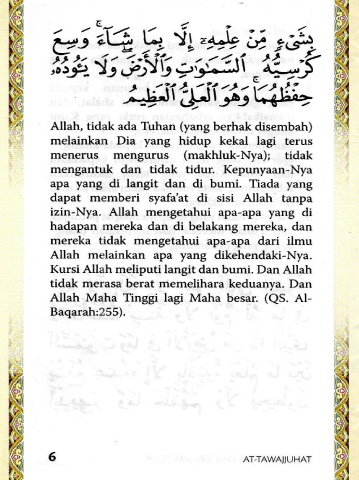 بِشَيْءٍ مِّنْ عِلْمِهِۦٓ إِلَّا بِمَا شَآءَۚ وَسِعَ
كُرْسِيُّهُ ٱلسَّمَٰوَٰتِ وَٱلْأَرْضَۖ وَلَا يَـُٔودُهُۥ
حِفْظُهُمَاۚ وَهُوَ ٱلْعَلِيُّ ٱلْعَظِيمُ
Allah, tidak ada Tuhan (yang berhak disembah)
melainkan Dia yang hidup kekal lagi terus
menerus mengurus (makhluk-Nya); tidak
mengantuk dan tidak tidur. Kepunyaan-Nya
apa yang di langit dan di bumi. Tiada yang
dapat memberi syafa'at di sisi Allah tanpa
izin-Nya. Allah mengetahui apa-apa yang di
hadapan mereka dan di belakang mereka, dan
mereka tidak mengetahui apa-apa dari ilmu
Allah melainkan apa yang dikehendaki-Nya.
Kursi Allah meliputi langit dan bumi. Dan Allah
tidak merasa berat memelihara keduanya. Dan
Allah Maha Tinggi lagi Maha besar. (QS. Al-
Baqarah:255).
6 AT-TAWAJJUHAT